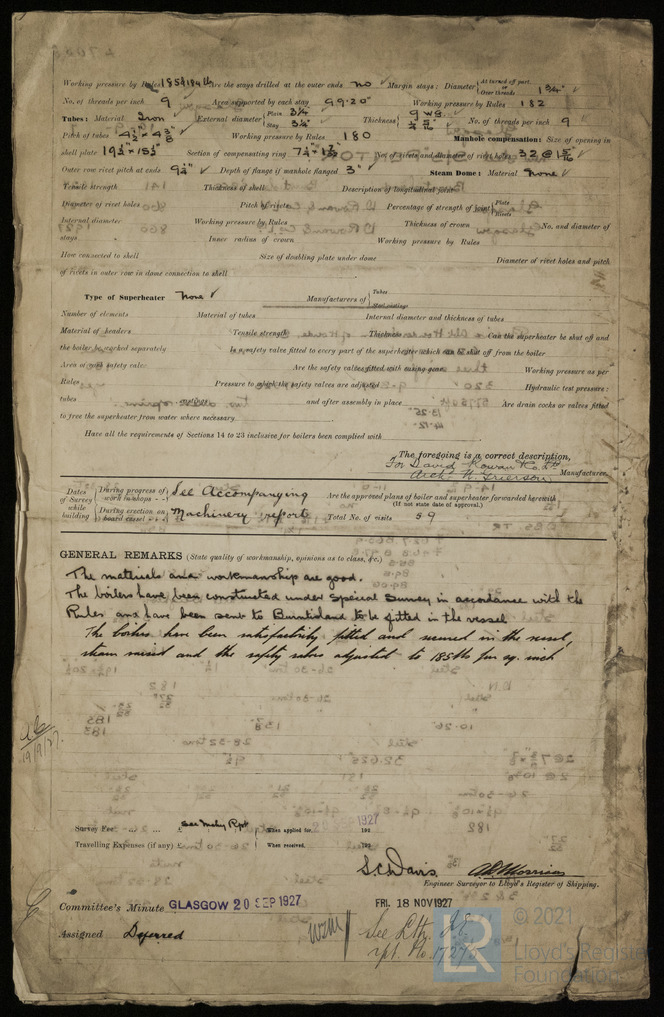 Working pressure by Rules 185 & 184 lb Are the stays drilled at the outer ends no Margin stays: Diameter { At turned off part, or Over threads 1 3/4"
No. of threads per inch 9 Area supported by each stay 99.20" Working pressure by Rules 182
Tubes: Material Iron External diameter { Plain 3 1/4" Stay 3 1/4" Thickness { 9 WG No. of threads per inch 9
Pitch of tubes Working pressure by Rules 180 Manhole compensation: Size of opening in
shell plate Section of compensating ring No. of rivets and diameter of rivet holes 32 @ 1 5/16"
Outer row rivet pitch at ends 9 1/2" Depth of flange if manhole flanged 3" Steam Dome: Material None
Tensile strength Thickness of shell Description of longitudinal joint
Diameter of rivet holes Pitch of rivets Percentage of strength of joint { Plate Rivets
Internal diameter Working pressure by Rules Thickness of crown No. and diameter of
stays Inner radius of crown Working pressure by Rules
How connected to shell Size of doubling plate under dome Diameter of rivet holes and pitch
of rivets in outer row in dome connection to shell
Type of Superheater None Manufacturers of { Tubes
Number of elements Material of tubes Internal diameter and thickness of tubes
Material of headers Tensile strength Thickness Can the superheater be shut off and
the boiler be worked separately Is a safety valve fitted to every part of the superheater which can be shut off from the boiler
Area of each safety valve Are the safety valves fitted with easing gear Working pressure as per
Rules Pressure to which the safety valves are adjusted Hydraulic test pressure:
tubes and after assembly in place Are drain cocks or valves fitted
to free the superheater from water where necessary
Have all the requirements of Sections 14 to 23 inclusive for boilers been complied with
The foregoing is a correct description,
For David Rowan & Co. Ltd
Arch. H. Grierson Manufacturer.
Dates of Survey while building { During progress of work in shops - - See Accompanying Are the approved plans of boiler and superheater forwarded herewith
(If not state date of approval.)
During erection on board vessel - - - Machinery report Total No. of visits 59
GENERAL REMARKS (State quality of workmanship, opinions as to class, &c.)
The materials and workmanship are good.
The boilers have been constructed under special survey in accordance with the
Rules and have been sent to Burntisland to be fitted in the vessel
The boilers have been satisfactorily fitted and secured in the vessel,
steam raised and the safety valves adjusted to 185 lbs per sq. inch
19/9/27.
Survey Fee ... ... See Mchy Rpt When applied for, 1927
Travelling Expenses (if any) £ When received, 192
S. C. Davis. A. D. Morrison
Engineer Surveyor to Lloyd's Register of Shipping.
Committee's Minute GLASGOW 20 SEP 1927 FRI. 18 NOV 1927
Assigned Deferred
rpt. No. 17275
© 2021
LR
Lloyd's Register
Foundation